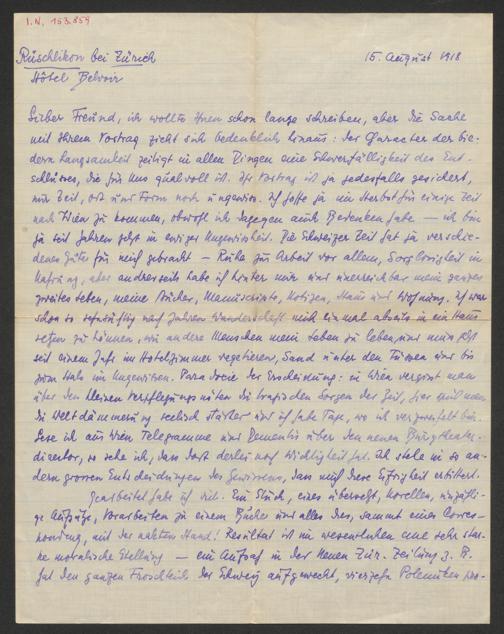 I.N. 153.859
Rüschlikon bei Zürich
15. August 1918
Hôtel Belvoir
Lieber Freund, ich wollte Ihnen schon lange schreiben, aber die Sache
mit Ihrem Vortrag zieht sich bedenklich hinaus: der Character der bie-
dern Langsamkeit zeitigt in allen Dingen eine Schwerfälligkeit des Ent-
schlusses, die für uns qualvoll ist. Ihr Vortrag ist ja jedesfalls gesichert,
nur Zeit, Ort und Form noch ungewiss. Ich hoffe ja im Herbst für einige Zeit
nach Wien zu kommen, obwohl ich dagegen auch Bedenken habe — ich bin
ja seit Jahren jetzt in ewiger Ungewissheit. Die Schweizer Zeit hat ja verschie-
denes Gute für mich gebracht — Ruhe zur Arbeit vor allem, Sorglosigkeit in
Nahrung, aber anderseits habe ich hinter mir und unerreichbar mein ganzes
zweites Leben, meine Bücher, Manuscripte, Notizen, Haus und Wohnung. Ich war
schon so sehnsüchtig nach Jahren Wanderschaft mich einmal abseits in ein Haus
setzen zu können, wie andere Menschen mein Leben zu leben, und muss jetzt
seit einem Jahr im Hotelzimmer vegetieren, Sand unter den Füssen und bis
zum Hals im Ungewissen. Paradoxie der Erscheinung: in Wien vergisst man
über den kleinen Verpflegungsnöten die tragischen Sorgen der Zeit, hier fühlt man
die Weltdämmerung seelisch stärker und ich habe Tage, wo ich verzweifelt bin.
Lese ich aus Wien Telegramme und Dementis über den neuen Burgtheater-
director, so sehe ich, dass dort derlei noch Wichtigkeit hat. Ich stehe in so an-
dern grossen Entscheidungen des Gewissens, dass mich diese Eifrigkeit erbittert.
Gearbeitet habe ich viel. Ein Stück, eines übersetzt, Novellen, unzähli-
ge Aufsätze, Vorarbeiten zu einem Buche und alles dies, sammt einer Corres-
pondenz, mit der nackten Hand! Resultat ist im wesentlichen eine sehr star-
ke moralische Stellung — ein Aufsatz in der Neuen Zür. Zeitung z. B.
hat den ganzen Froschteich der Schweiz aufgeweckt, vierzehn Polemiken